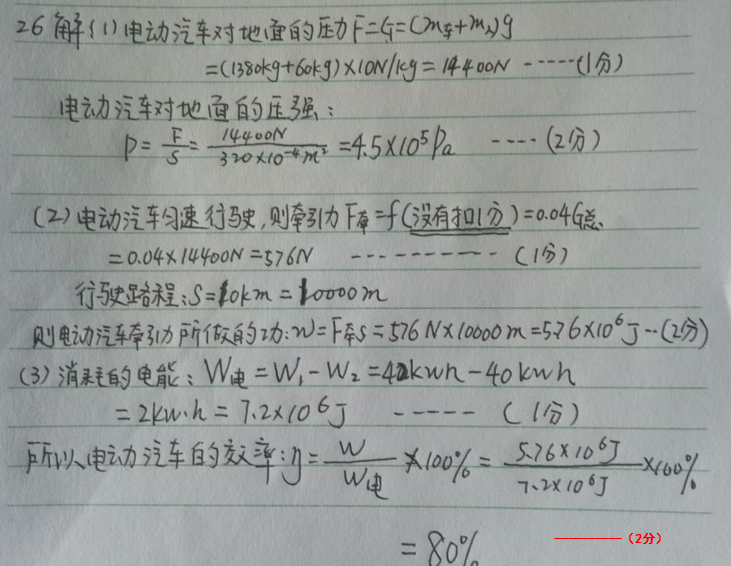 26解:(1)电动汽车对地面的压力F=G=(m车+m人)g
=(1380kg+60kg)×10N/kg=14400N -----(1分)
电动汽车对地面的压强:
P=F/S=14400N/320×10⁻⁴m²=4.5×10⁵Pa ----(2分)
(2)电动汽车匀速行驶,则牵引力F牵=f(没有扣1分)=0.04G总
=0.04×14400N=576N ---------(1分)
行驶路程:S=10km=10000m
则电动汽车牵引力所做的功:W=F牵S=576N×10000m=5.76×10⁶J--(2分)
(3)消耗的电能:W电=W₁-W₂=42kwh-40kwh
=2kw·h=7.2×10⁶J -----(1分)
所以电动汽车的效率:η=W/W电×100%=5.76×10⁶J/7.2×10⁶J×100%
=80% ————(2分)